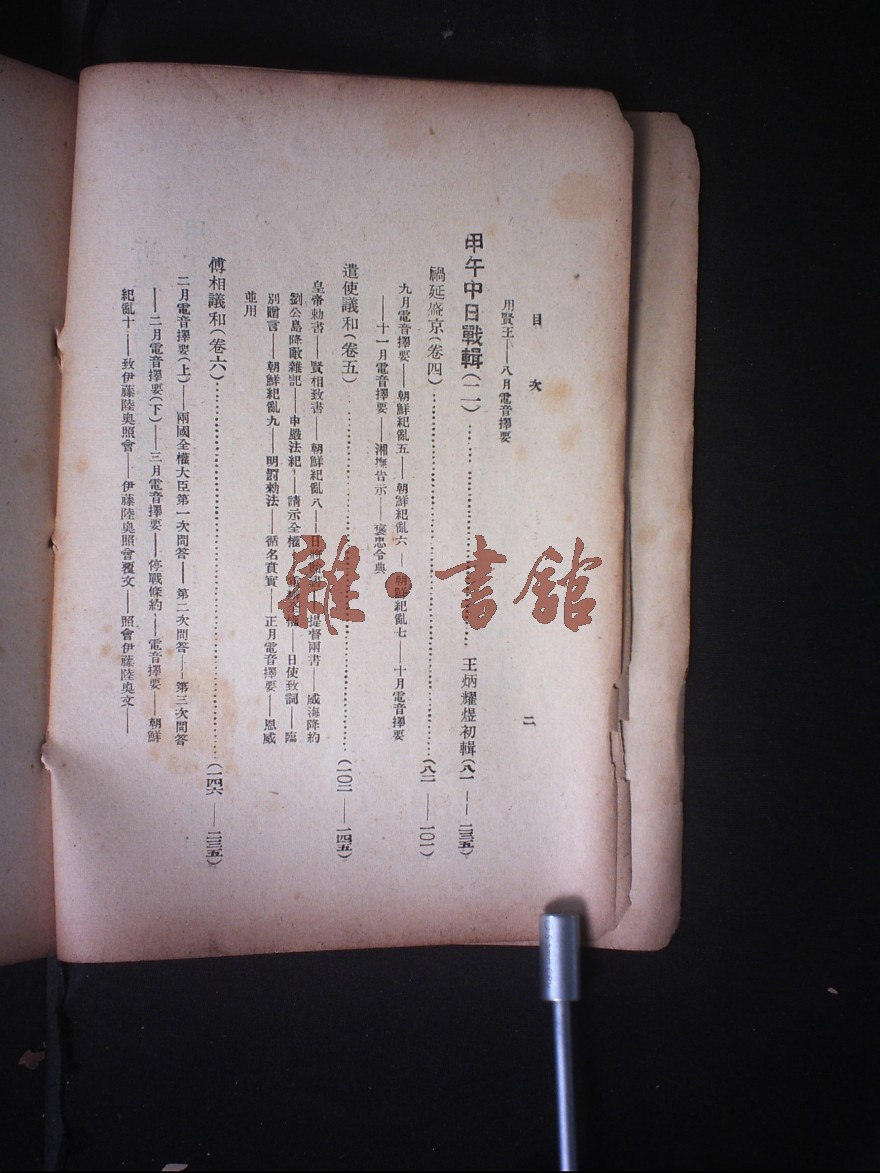 目次 二
用賢王——八月電音擇要
甲午中日戰輯(二)……王炳耀煜初輯(八一——二三五)
禍延盛京(卷四)……(八二——一〇一)
九月電音擇要——朝鮮紀亂五——朝鮮紀亂六——朝鮮紀亂七——十月電音擇要
——十一月電音擇要——湘撫告示——褒忠令典
遣使議和(卷五)……(一〇二——一四五)
皇帝勅書——賢相致書——朝鮮紀亂八——日將貽書——提督兩書——威海降約
劉公島降敵雜記——申嚴法紀——請示全權——全權——日使致詞——臨
別贈言——朝鮮紀亂九——明罰勅法——循名責實——正月電音擇要——恩威
並用
傅相議和(卷六)……(一四六——二三五)
二月電音擇要(上)——兩國全權大臣第一次問答——第二次問答——第三次問答
——二月電音擇要(下)——三月電音擇要——停戰條約——電音擇要——朝鮮
紀亂十——致伊藤陸奧照會——伊藤陸奧照會覆文——照會伊藤陸奧文——
雜·書館